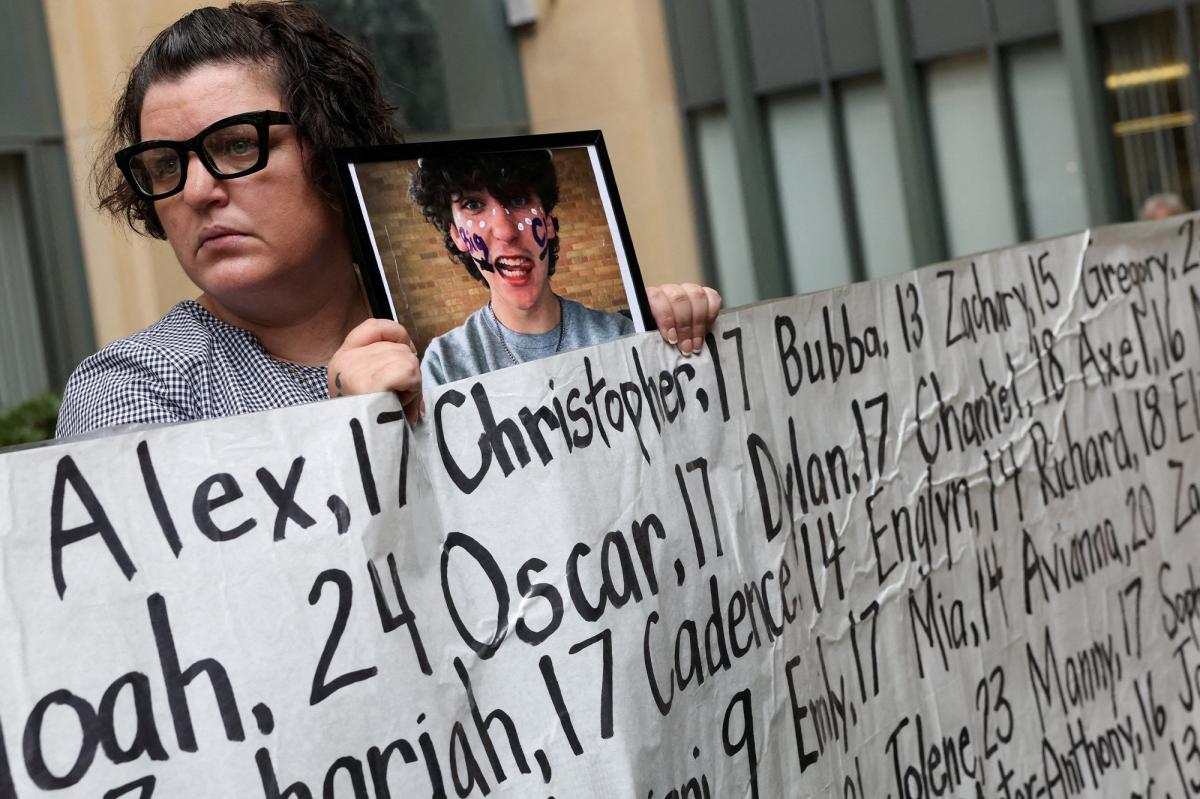 Big C
Alex, 17 Christopher, 17 Bubba, 13 Zachary, 15 Gregory, 2
oah, 24 Oscar, 17 Dylan, 17 Chantel, 18 Axel, 16
hariah, 17 Cadence, 14 Englyn, 14 Richard, 18 El
9 Emily, 17 Mia, 14 Avianna, 20 Za
Jolene, 23 Manny, 17 Soph
Anthony, 16